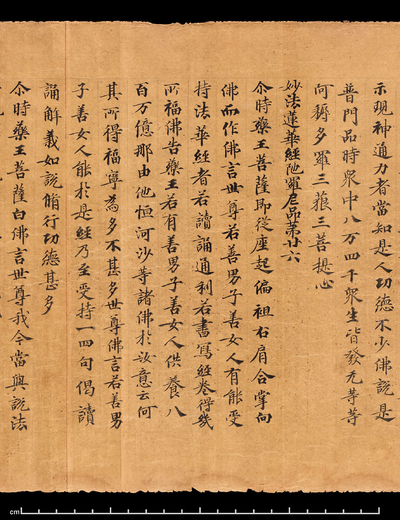 示現神通力者當知是人功德不少佛說是
普門品時衆中八万四千衆生皆發无等等
阿耨多羅三藐三菩提心
妙法蓮華經陁羅尼品第廿六
尒時藥王菩薩即從座起偏袒右肩合掌向
佛而作佛言世尊若善男子善女人有能受
持法華經者若讀誦通利若書寫經卷得幾
所福佛告藥王若有善男子善女人供養八
百万億那由他恒河沙等諸佛於汝意云何
其所得福寧為多不甚多世尊佛言若善男
子善女人能於是經乃至受持一四句偈讀
誦解義如說脩行功德甚多
尒時藥王菩薩白佛言世尊我今當與說法